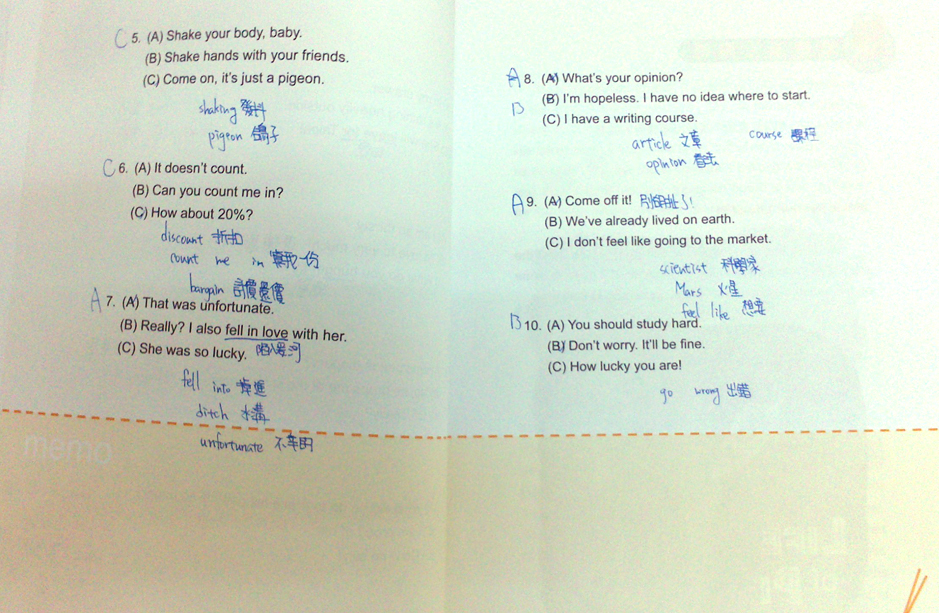 C 5. (A) Shake your body, baby.
(B) Shake hands with your friends.
(C) Come on, it's just a pigeon.
shaking 發抖
pigeon 鴿子
C 6. (A) It doesn't count.
(B) Can you count me in?
(C) How about 20%?
discount 折扣
count me in 算我一份
bargain 討價還價
A 7. (A) That was unfortunate.
(B) Really? I also fell in love with her.
(C) She was so lucky. 陷入愛河
fell into 掉進
ditch 水溝
unfortunate 不幸的
memo
A 8. (A) What's your opinion?
B (B) I'm hopeless. I have no idea where to start.
(C) I have a writing course.
article 文章 course 課程
opinion 看法
A 9. (A) Come off it! 別胡扯了!
(B) We've already lived on earth.
(C) I don't feel like going to the market.
scientist 科學家
Mars 火星
feel like 想要
B 10. (A) You should study hard.
(B) Don't worry. It'll be fine.
(C) How lucky you are!
go wrong 出錯